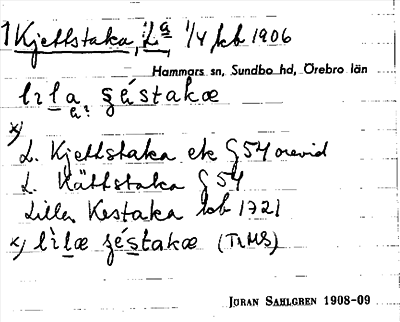 Kjettstaka, La 1/4 kb 1906
Hammars sn, Sundbo hd, Örebro län
lìla źéstakæ
a:
x)
L. Kjettstaka ek § 54 orevid
L. Kättstaka § 54
Lilla Kestaka kb 1721
x) lìlæ źéstakæ (TrMS)
JÖRAN SAHLGREN 1908-09